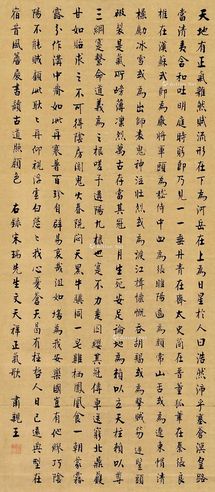 天地有正氣雜然賦流形在下為河岳在上為日星於人曰浩然沛乎塞蒼溟皇路
當清夷含和吐明庭時窮節乃見一一垂丹青在齊太史簡在晉董狐筆在秦張良
椎在漢蘇武節為嚴將軍頭為嵇侍中血為張睢陽齒為顏常山舌或為遼東帽清
操勵冰雪或為出師表鬼神泣壯烈或為渡江楫慷慨吞胡羯或為擊賊笏逆豎頭
破裂是氣所磅礴凜烈萬古存當其貫日月生死安足論地維賴以立天柱賴以尊
三綱實繫命道義為之根嗟予遘陽九隸也實不力楚囚纓其冠傳車送窮北鼎鑊
甘如飴求之不可得陰房闃鬼火春院閟天黑牛驥同一皂雞棲鳳凰食一朝蒙霧
露分作溝中瘠如此再寒暑百沴自辟易哀哉沮洳場為我安樂國豈有他繆巧陰
陽不能賊顧此耿耿在仰視浮雲白悠悠我心憂蒼天曷有極哲人日已遠典型在
宿昔風簷展書讀古道照顏色 右錄宋瑞先生文天祥正氣歌 肅親王